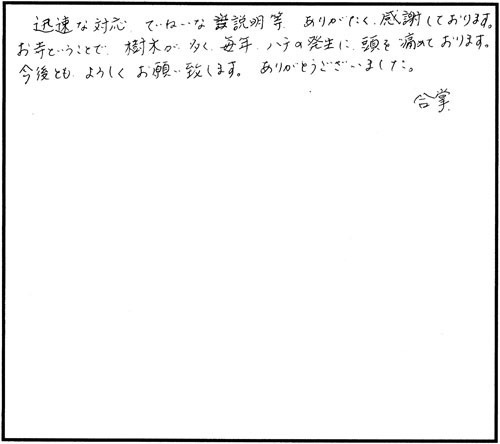 迅速な対応、ていねいな説明等、ありがたく、感謝しております。
お寺ということで、樹木が多く、毎年、ハチの発生に、頭を痛めております。
今後とも、よろしくお願い致します。ありがとうございました。
合掌